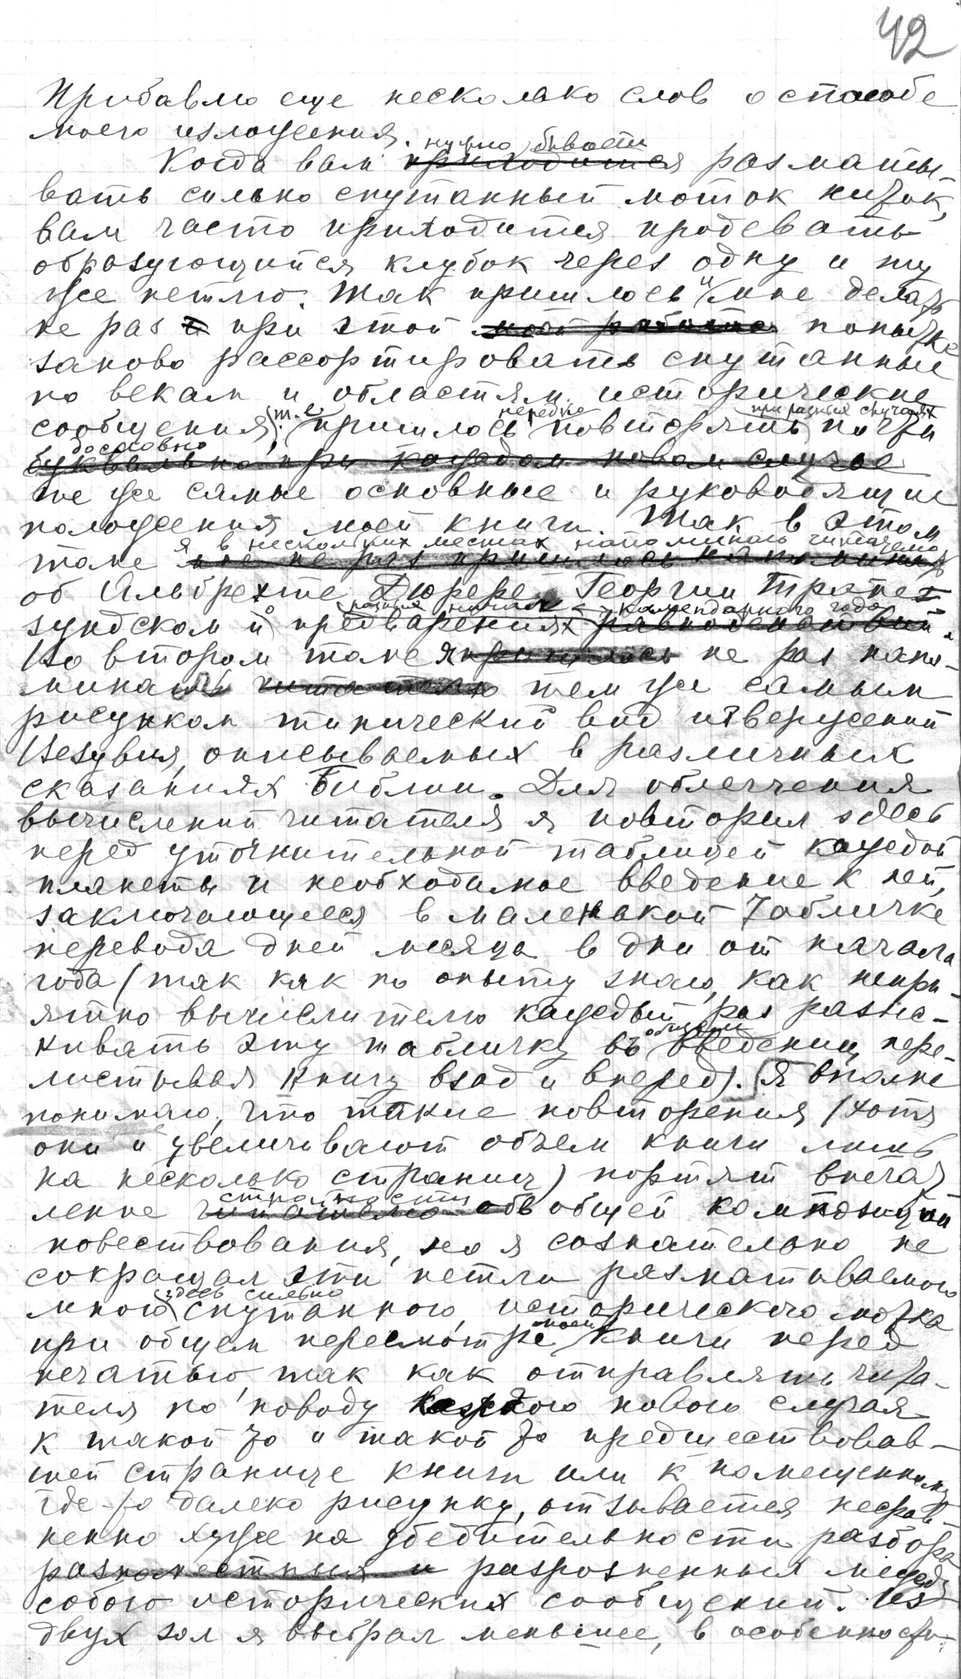 42
Прибавлю еще несколько слов о способе
моего изложения.
нужно бывает
Когда вам приходится разматы-
вать сильно спутанный моток ниток,
вам часто приходится продевать
образующийся клубок через одну и ту
же петлю. Так пришлось и мне делать
не раз и при этой моей работе попытке
заново рассортировать спутанные
по векам и областям исторические
т.е. нередко при разных случаях
сообщения, пришлось повторять почти
дословно
буквально при каждом новом случае
те же самые основные и руководящие
положения моей книги. Так в этом
я в нескольких местах напоминаю читателю
томе мне не раз пришлось напоминать
об Альбрехте Дюрере, Георгии Трапе-
разных начал календарного года
зундском и предварениях равноденствий.
Во втором томе я пришлось не раз напо-
минал читателю тем же самым
рисунком типический вид извержений
Везувия, описываемых в различных
сказаниях Библии. Для облегчения
вычислений читателя я повторил здесь
перед уточнительной таблицей каждой
планеты и необходимое введение к ней,
заключающееся в маленькой табличке
перевода дней месяца в дни от начала
года (так как по опыту знаю, как непри-
ятно вычислителю каждый раз разыс-
общем
кивать эту табличку во введении, пере-
листывая книгу взад и вперед). Я вполне
понимаю, что такие повторения (хотя
они и увеличивают объем книги лишь
на несколько страниц) портят впечат-
стройности
ление читателю об общей композиции
повествования, но я сознательно не
сокращал эти петли разматываемого
здесь сильно
мною спутанного исторического мотка
моей
при общем пересмотре книги перед
печатью, так как отправлять чита-
теля по поводу каждого нового случая
к такой то и такой то предшествовав-
шей странице книги или к помещенному
где-то далеко рисунку, отзывается несрав-
ненно хуже на убедительности разбора
разноместных и разрозненных между
собою исторических сообщений. Из
двух зол я выбрал меньшее, в особенности